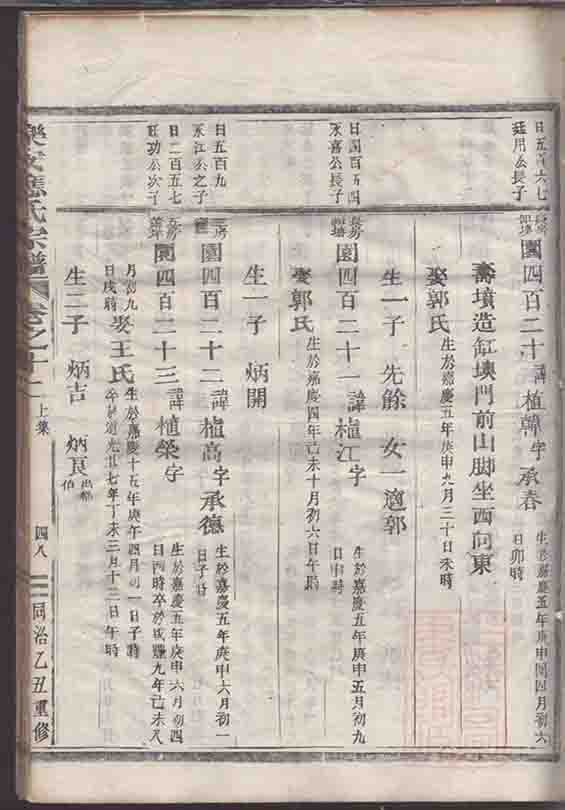 日五百六七
廷用公長子
園四百二十 諱植韓字承春 生於嘉慶五年庚申閏四月初六
日卯時
壽墳造缸㘭門前山脚坐西向東
娶郭氏 生於嘉慶五年庚申九月三十日未時
生一子 先餘 女一適郭
日四百五四
永喜公長子
長房
園四百二十一 諱植江字 生於嘉慶五年庚申五月初九
日申時
娶郭氏 生於嘉慶四年己未十月初六日午時
生一子 炳開
日五百九
永江公之子
園四百二十二 諱植高字承德 生於嘉慶五年庚申六月初一
日子時
日二百五七
旺功公次子
園四百二十三 諱植榮字 生於嘉慶五年庚申六月初四
日酉時卒於咸豐九年己未八
月初九
日戌時 娶王氏 生於嘉慶十五年庚午四月初一日子時
卒於道光廿七年丁未三月十二日午時
生二子 炳吉 炳良 出紹
伯
應氏宗譜 卷之十二 上集 四八 同治乙丑重修